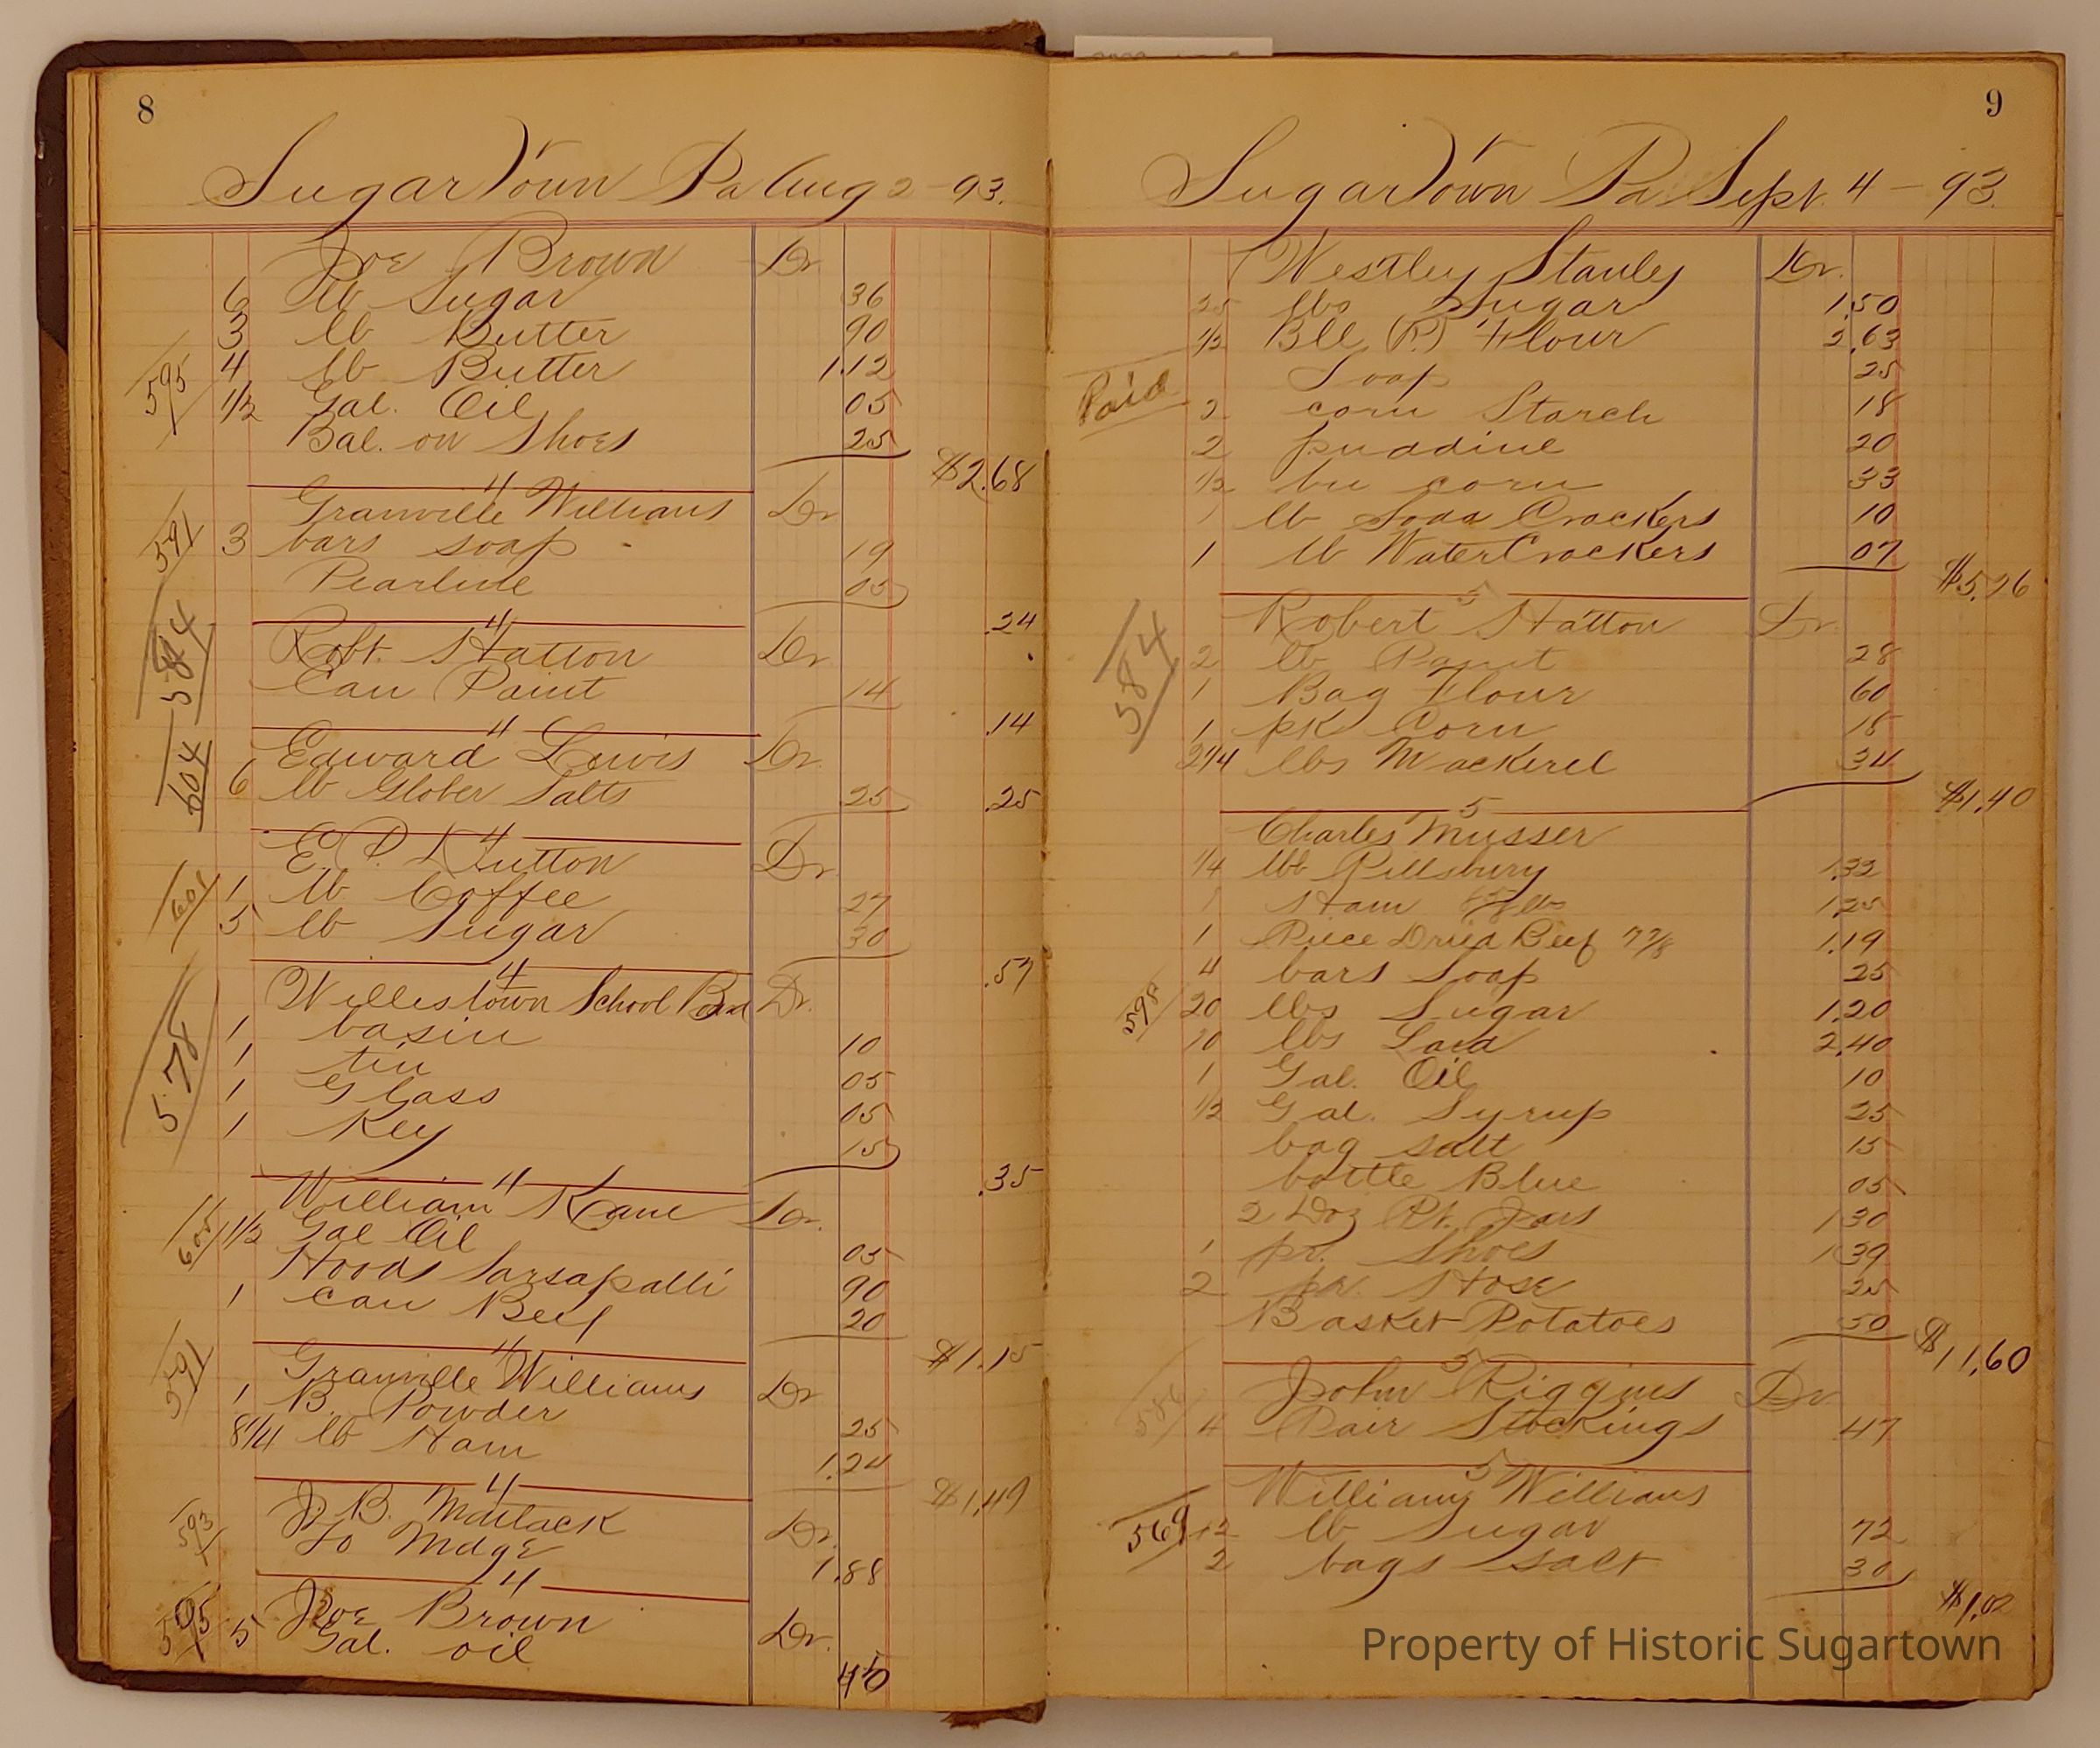 8
SugarTown Pa Aug 2-93.
Joe Brown Dr
6 lb Sugar 36
3 lb Butter 90
595 4 lb Butter 1.12
1/2 Gal. Oil 05
Bal. on Shoes 25
$2.68
4
Granville Williams Dr
591 3 bars soap 19
Pearline 05
.24
4
584 Robt. Hatton Dr
Can Paint 14
.14
4
604 Edward Lewis Dr.
6 lb Glober Salts 25 .25
4
E. P. Hutton Dr
601 1 lb Coffee 27
5 lb Sugar 30
.57
4
Willistown School Board Dr.
578 1 basin 10
1 tin 05
1 Glass 05
1 Key 15
.35
4
William Kane Dr.
605 1/2 Gal Oil 05
Hoods Sarsapalli 90
1 can Beef 20
$1.15
4
591 Granville Williams Dr
1 B. Powder 25
8 1/4 lb Ham 1.24
$1.49
4
593 J. B. Matlack Dr.
To Mdge 1.88
4
595 Joe Brown Dr.
5 Gal. oil 40
9
SugarTown Pa Sept. 4-93.
Westley Stanley Dr.
25 lbs Sugar 1.50
1/2 Bll (P.) Flour 2.63
Paid Soap 25
2 corn Starch 18
2 puddine 20
1/2 bu corn 33
1 lb Soda Crackers 10
1 lb Water Crackers 07
$5.26
5
584 Robert Hatton Dr.
2 lb Paint 28
1 Bag Flour 60
1 pk Corn 18
2 1/4 lbs Mackerel 34
$1.40
5
Charles Musser
1/4 bbl Pillsbury 1.32
1 Ham lbs 1.25
1 Piece Dried Beef 7 7/8 1.19
4 bars Soap 25
598 20 lbs Sugar 1.20
lbs Lard 2.40
1 Gal. Oil 10
1/2 Gal. Syrup 25
bag salt 15
bottle Blue 05
2 Doz Pt. Jars 1.30
1 pr. Shoes 1.39
2 pr. Hose 25
Basket Potatoes 50
$11.60
5
586 John Riggins Dr.
4 Pair Stockings 47
5
William Williams
569 12 lb Sugar 72
2 bags salt 30
$1.02
Property of Historic Sugartown